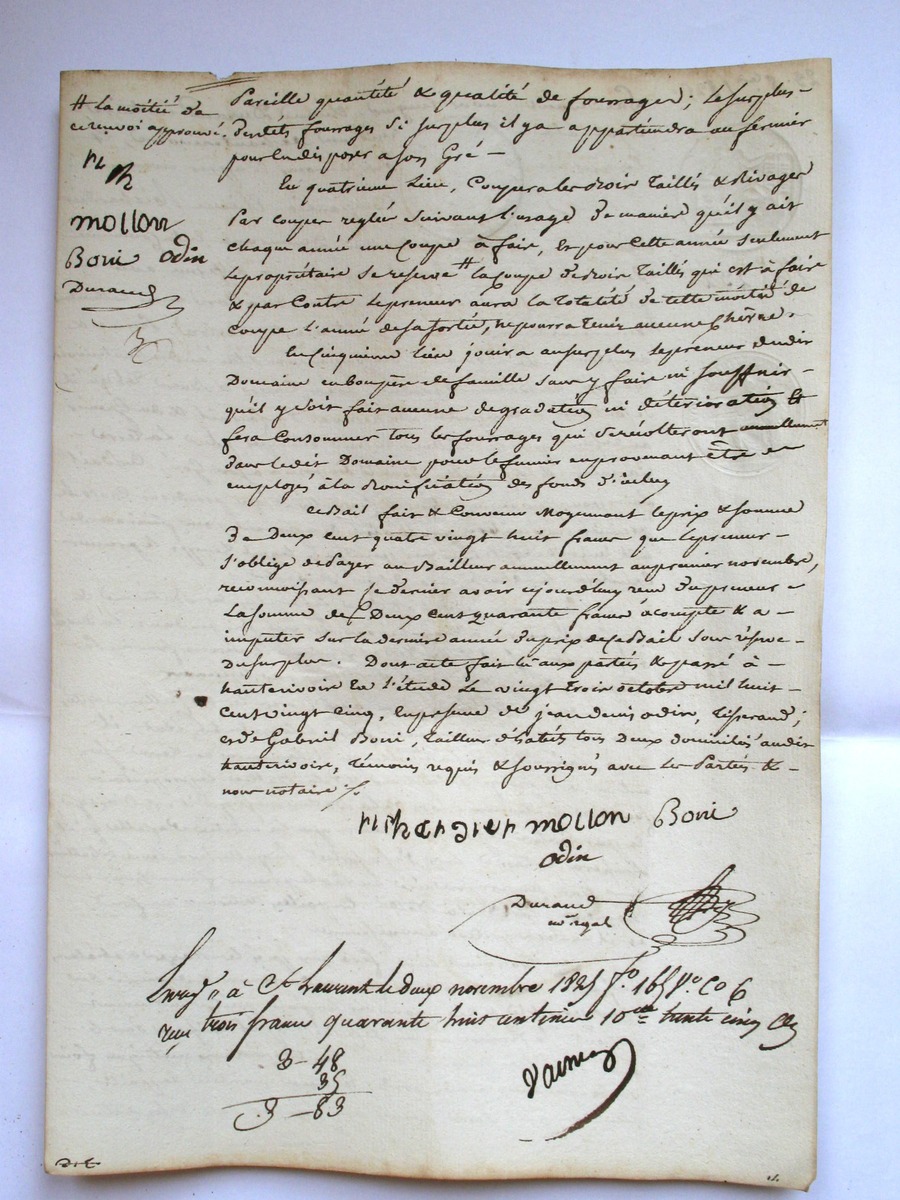 # La moitié de
ce renvoi approuvé.
mollon
Boni odin
Durand
Pareille quantité & qualité de fourrages; le surplus
desdits fourrages si surplus il y a appartiendra au fermier
pour en disposer a son Gré —
En quatrieme Lieu, Coupera les bois Taillés & Rivages
Par coupes reglées suivant l'usage de maniere qu'il y ait
chaque année une Coupe à faire, & pour cette année seulement
le propriétaire se reserve # la Coupe des bois Taillis qui est à faire
& par Contre le preneur aura la Totalité de cette moitié de
Coupe l'année de sa sortie, ne pourra Tenir aucune Chèvre.
En Cinquieme lieu jouira au surplus le preneur dudit
Domaine en bon père de famille sans y faire ni souffrir
qu'il y soit fait aucune degradation ni déterioration &
fera Consommer tous les fourrages qui se récolteront annuellement
dans ledit Domaine pour le fumier en provenant être
employés à la bonification des fonds d'iceluy
Ce Bail fait & Convenu Moyennant le prix & somme
De Deux cent quatre vingt huit francs que le preneur
s'oblige de Payer au Bailleur annuellement au premier novembre,
reconnoissant ce dernier avoir cejourd'huy reçu du preneur
La somme de Deux Cent quarante francs à compte & a
imputer sur la derniere année du prix de ce Bail sous réserve
Du surplus. Dont acte fait lu aux parties & passé à
hauterivoire En l'étude Le vingt trois octobre mil huit
Cent vingt Cinq, En presence de jean denis odin, Tisserand;
et de Gabriel Boni, Tailleur d'habits tous Deux domiciliés audit
hauterivoire, témoins requis & soussignés avec les Parties &
nous notaire ./.
richardier mollon Boni
odin
Durand
not royal
Enreg. à St Laurent le deux novembre 1825 fo. 165 Vo. Co 6
reçu trois francs quarante huit centimes 10me trente cinq Ces
3 – 48
35
3 – 83